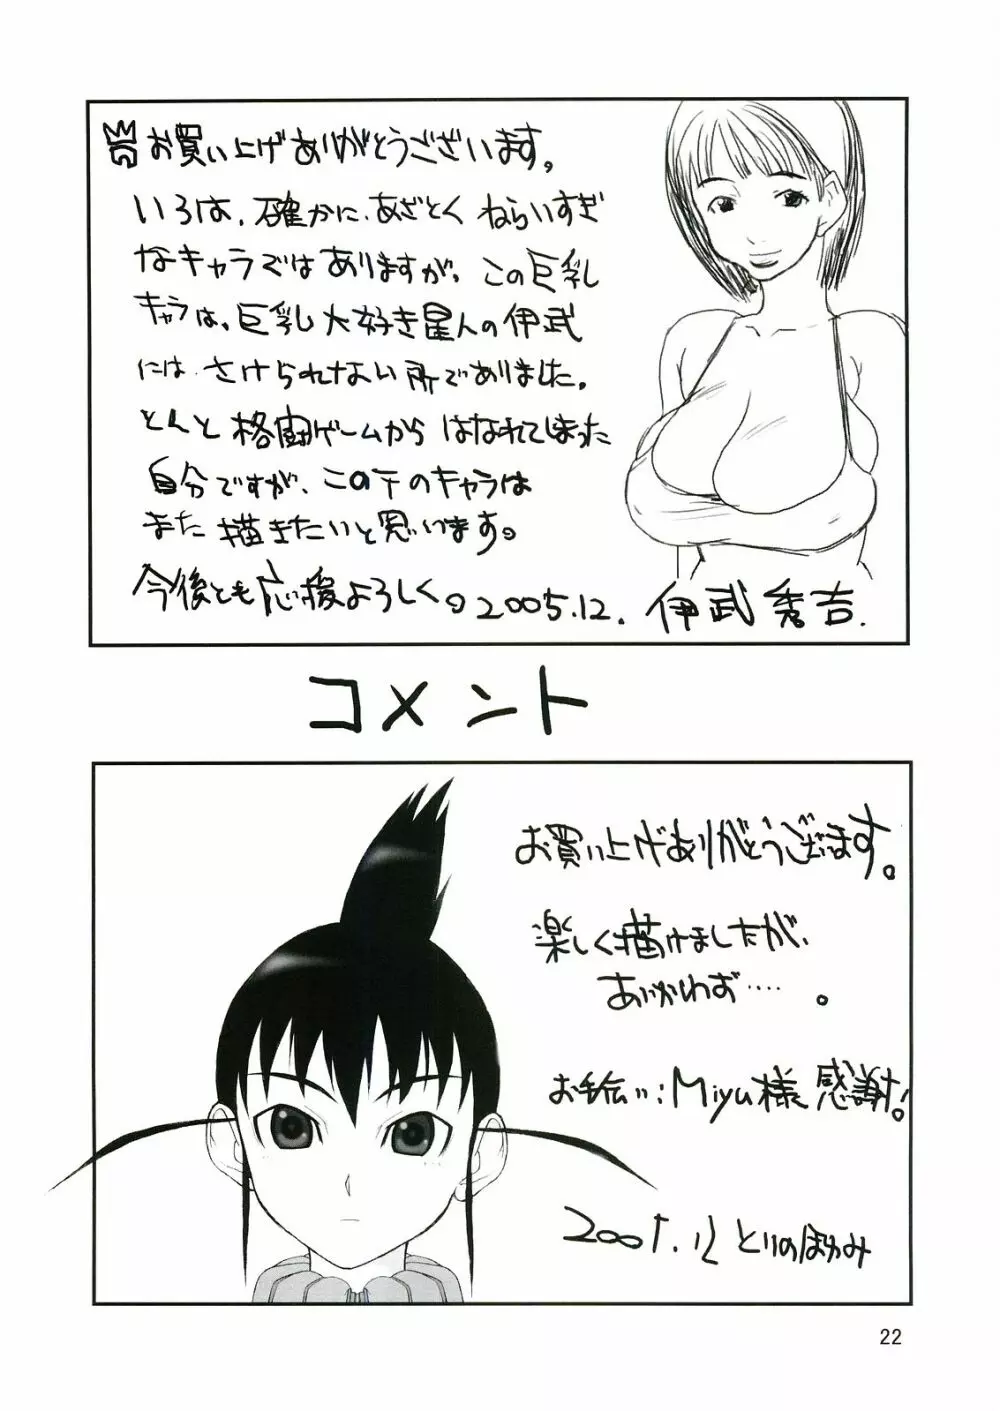 お買い上げありがとうございます。
いろは、確かに、あざとくねらいすぎ
なキャラではありますが、この巨乳
キャラは、巨乳大好き星人の伊武
にはさけられない所でありました。
とんと格闘ゲームからはなれてしまった
自分ですが、この千のキャラは
また描きたいと思います。
今後とも応援よろしく。2005.12. 伊武秀吉.
コメント
お買い上げありがとうございます。
楽しく描けましたが、
あいかわらず‥‥。
お手伝い:Miyu様感謝!
2005.12 とりのほかみ
22